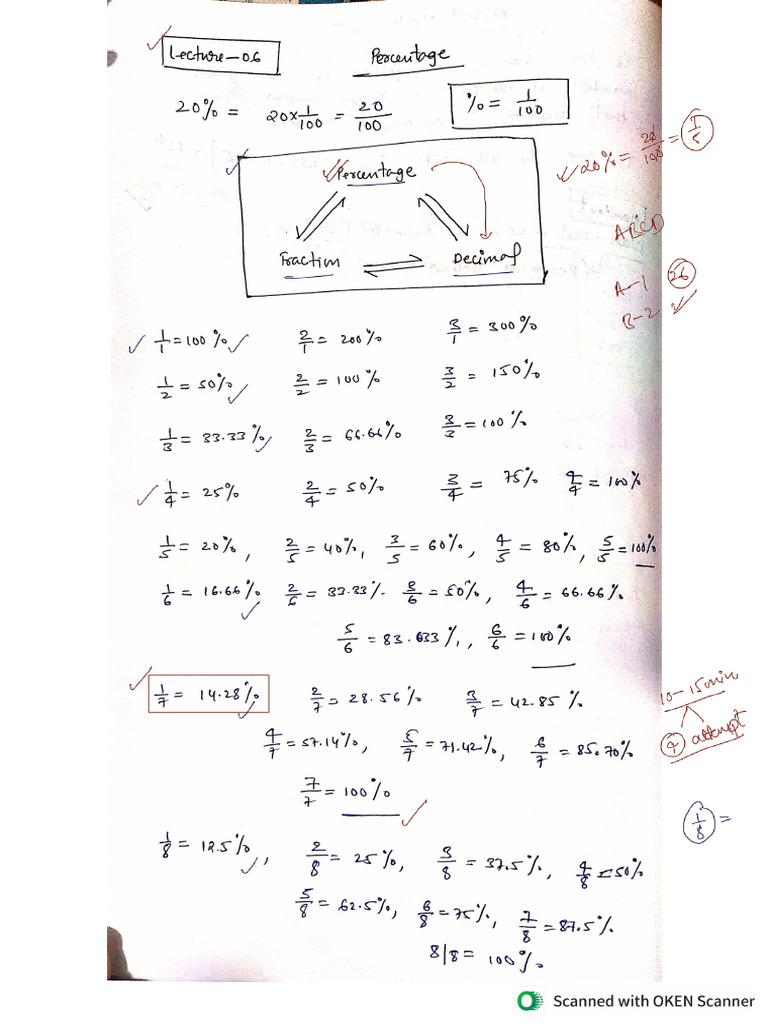 Lecture-06 Percentage
20% = 20×1/100 = 20/100 %= 1/100
20% = 20/100 = 1/5
Percentage
Fraction Decimal
ABCD
A-1 26
B-2
1/1 = 100% 2/1 = 200% 3/1 = 300%
1/2 = 50% 2/2 = 100% 3/2 = 150%
1/3 = 33.33% 2/3 = 66.66% 3/3 = 100%
1/4 = 25% 2/4 = 50% 3/4 = 75% 4/4 = 100%
1/5 = 20%, 2/5 = 40%, 3/5 = 60%, 4/5 = 80%, 5/5 = 100%
1/6 = 16.66% 2/6 = 33.33%. 3/6 = 50%, 4/6 = 66.66%.
5/6 = 83.633%, 6/6 = 100%
1/7 = 14.28% 2/7 = 28.56% 3/7 = 42.85%
10-15min
4 attempt
4/7 = 57.14%, 5/7 = 71.42%, 6/7 = 85.70%
7/7 = 100%
1/8 =
1/8 = 12.5%, 2/8 = 25%, 3/8 = 37.5%, 4/8 = 50%
5/8 = 62.5%, 6/8 = 75%, 7/8 = 87.5%
8/8 = 100%
Scanned with OKEN Scanner